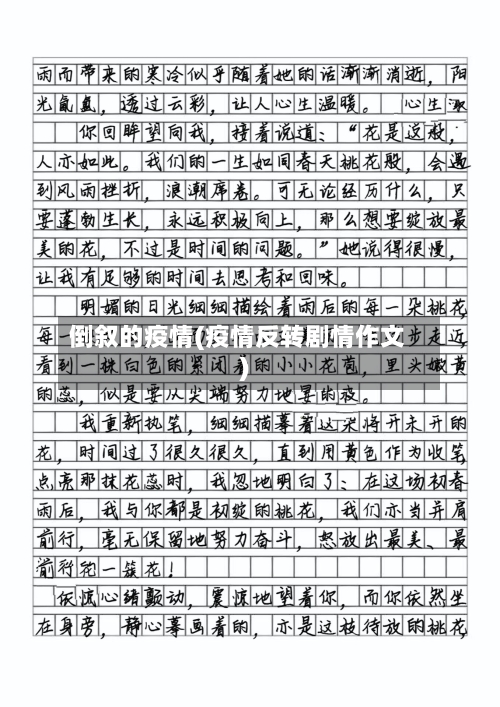 雨而带来的寒冷似乎随着她的话渐渐消逝，阳
光氤氲，透过云彩，让人心生温暖。 心生
你回眸望向我，接着说道："花是这般，
人亦如此。我们的一生如同春天桃花般，会遇
到风雨挫折，浪潮席卷。可无论经历什么，只
要蓬勃生长，永远积极向上，那么想要绽放最
美的花，不过是时间的问题。"她说得很慢，
让我有足够的时间去思考和回味。
明媚的日光细细描绘着雨后的每一朵桃花，
每 步走近，
倒叙的疫情(疫情反转剧情作文
)
看到一株白色的紧闭着的小小花苞，里头嫩黄
的蕊，似是要从尖端努力地晃的
我重新执笔，细细描摹着这朵将开未开的
花，时间过了很久很久，直到用黄色作为收笔
点亮那抹花蕊时，我忽地明白了：在这场初春
雨后，我与你都是初绽的桃花，我们亦当并肩
前行，毫无保留地努力奋斗，怒放出最美、最
一簇花！
依惊心绪颤动，震惊地望着你，而你依然坐
在身旁，静心摹画着的，亦是这枝待放的桃花，